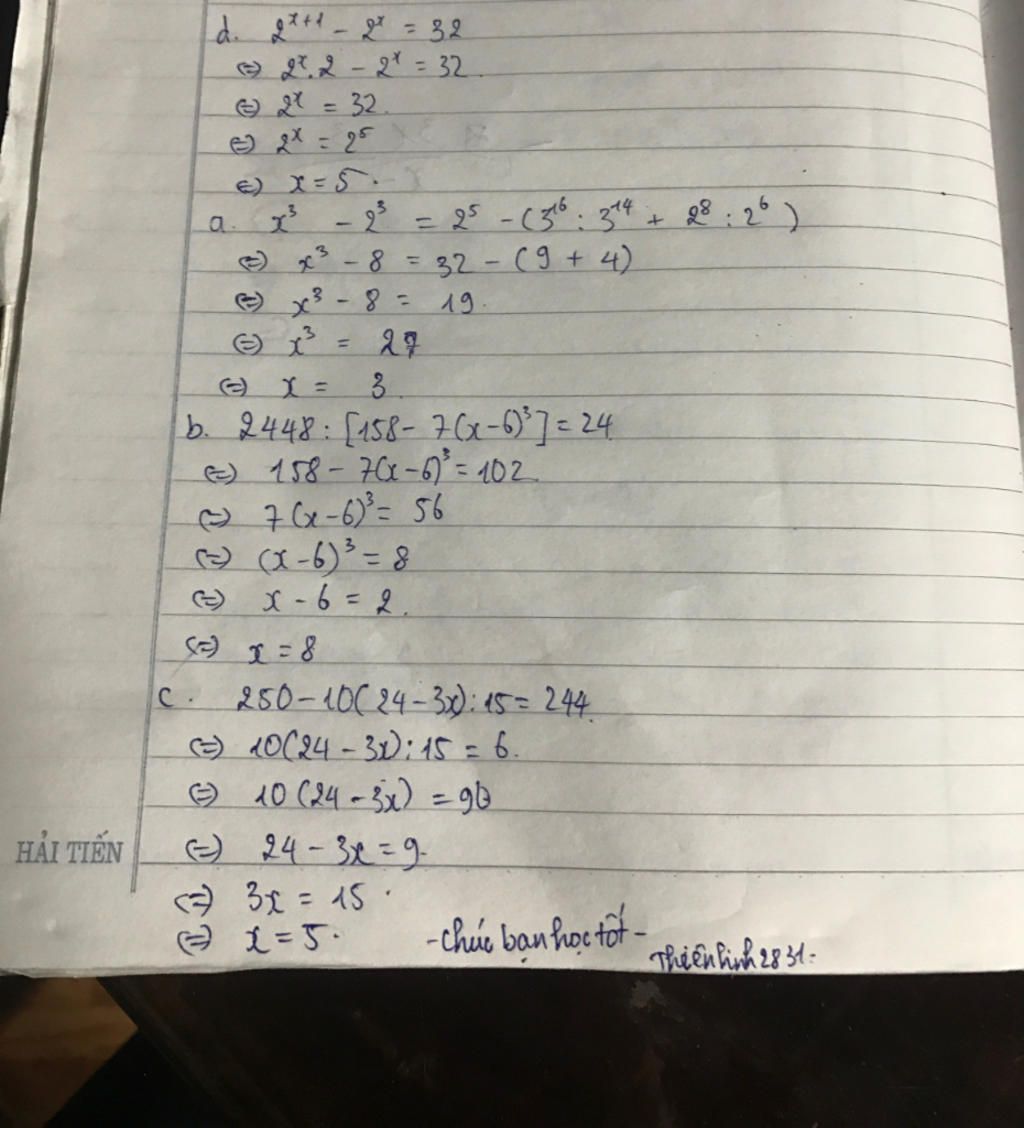 d. 2ˣ⁺¹ - 2ˣ = 32
⇔ 2ˣ.2 - 2ˣ = 32.
⇔ 2ˣ = 32.
⇔ 2ˣ = 2⁵
⇔ x = 5.
a. x³ - 2³ = 2⁵ - (3¹⁶ : 3¹⁴ + 2⁸ : 2⁶)
⇔ x³ - 8 = 32 - (9 + 4)
⇔ x³ - 8 = 19.
⇔ x³ = 27
⇔ x = 3.
b. 2448 : [158 - 7(x-6)³] = 24
⇔ 158 - 7(x-6)³ = 102.
⇔ 7(x-6)³ = 56
⇔ (x-6)³ = 8
⇔ x - 6 = 2.
⇔ x = 8
c. 250 - 10(24 - 3x) : 15 = 244.
⇔ 10(24 - 3x) : 15 = 6.
⇔ 10(24 - 3x) = 90
HẢI TIẾN ⇔ 24 - 3x = 9.
⇔ 3x = 15.
⇔ x = 5. - chúc bạn học tốt -
Thiênlinh2831.